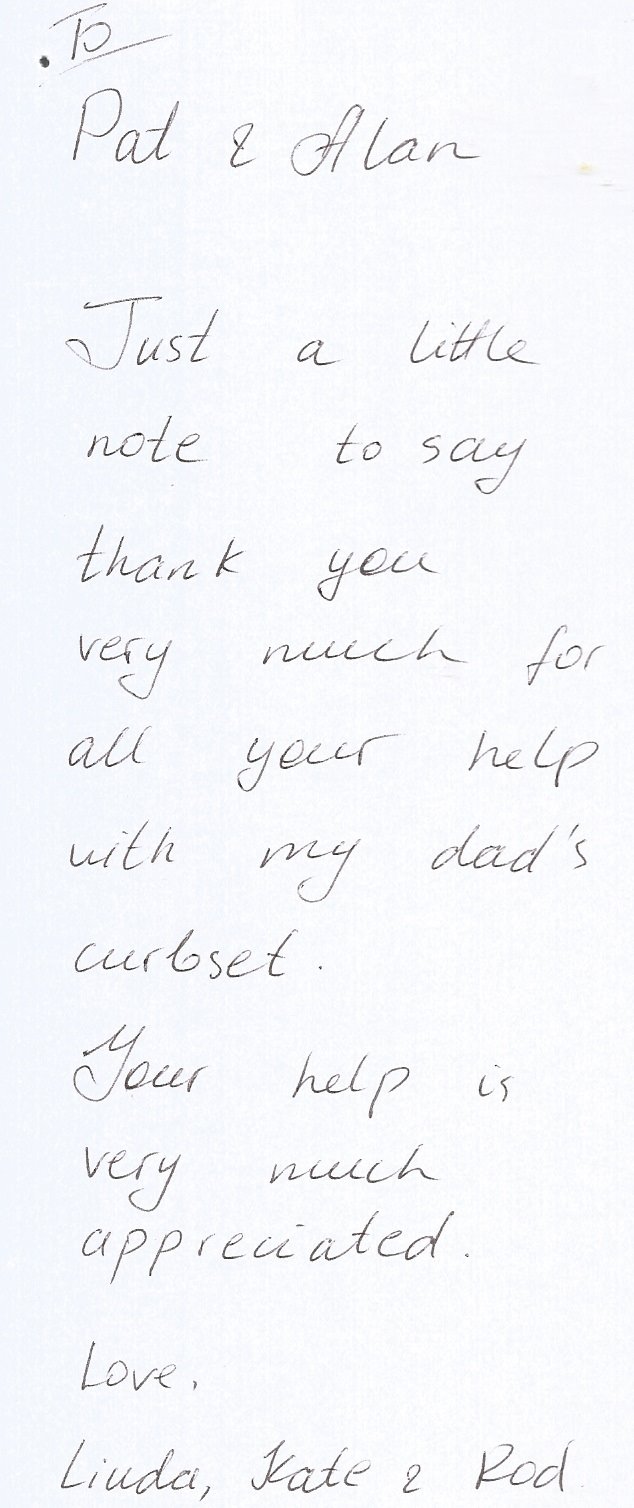 To
Pat & Alan
Just a little
note to say
thank you
very much for
all your help
with my dad's
curbset.
Your help is
very much
appreciated.
Love.
Linda, Kate & Rod